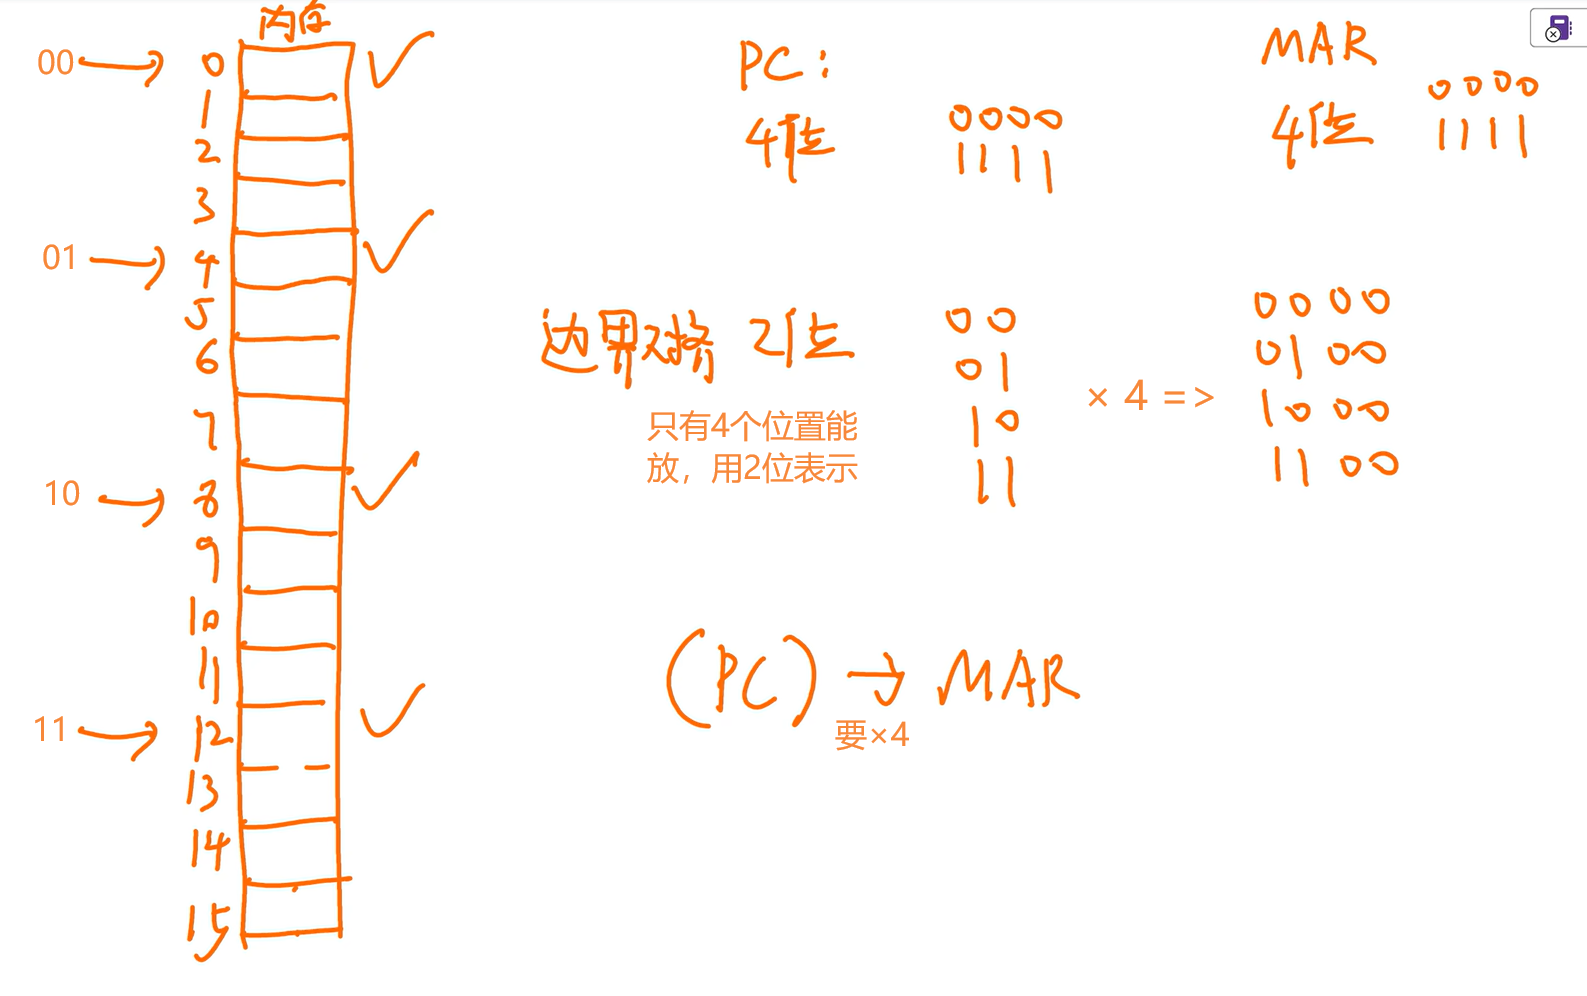 内存
00 → 0 ✓
1
2
3
01 → 4 ✓
5
6
7
10 → 8 ✓
9
10
11
11 → 12 ✓
13
14
15
PC:
4位
0000
1111
MAR
4位
0000
1111
边界对齐 2位
只有4个位置能
放，用2位表示
00
01
10
11
× 4 =>
00 00
01 00
10 00
11 00
(PC) → MAR
要×4